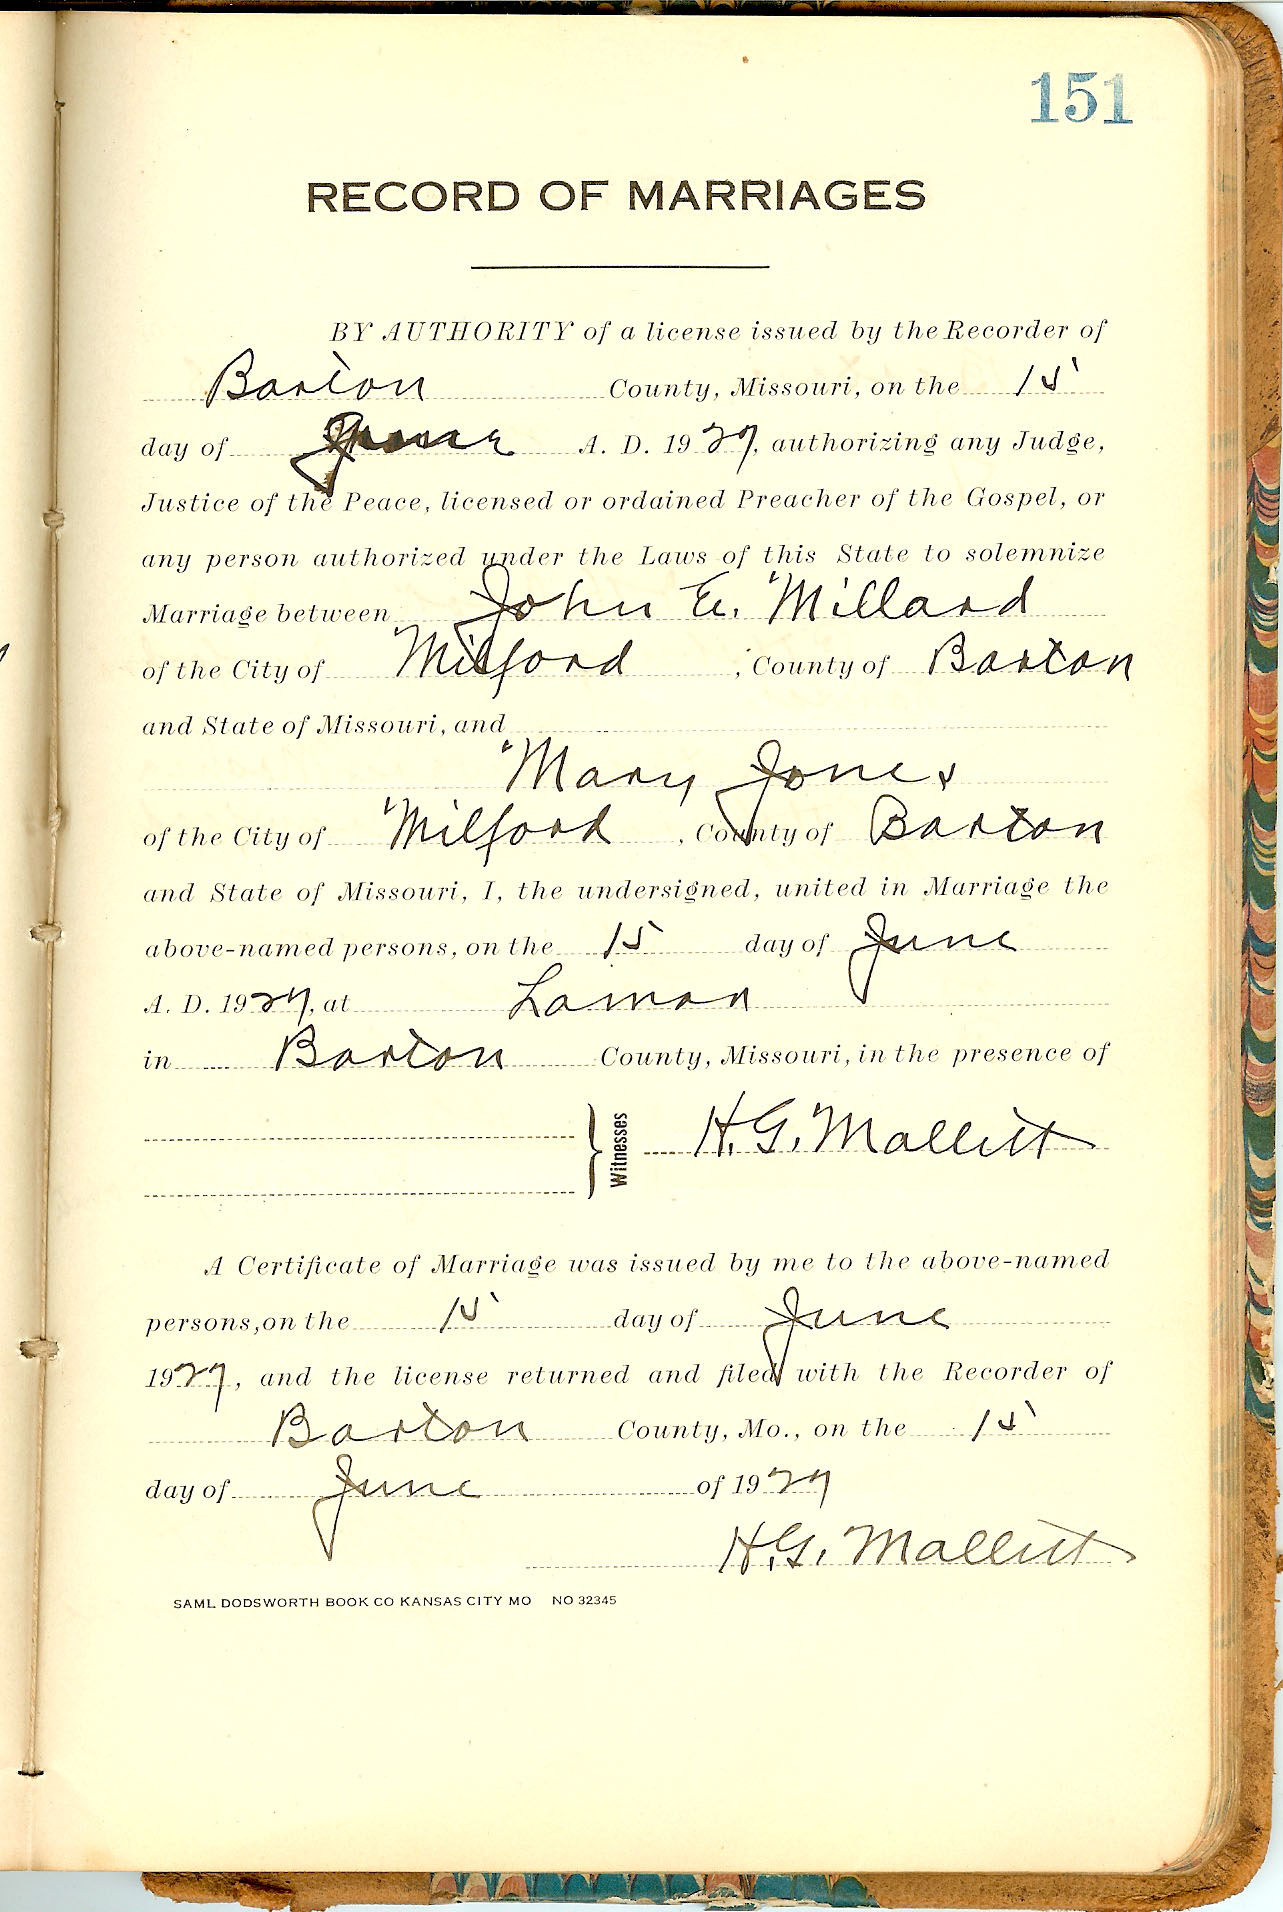 151
RECORD OF MARRIAGES
BY AUTHORITY of a license issued by the Recorder of
Barton County, Missouri, on the 15
day of June A. D. 1927, authorizing any Judge,
Justice of the Peace, licensed or ordained Preacher of the Gospel, or
any person authorized under the Laws of this State to solemnize
Marriage between John E. Millard
of the City of Milford, County of Barton
and State of Missouri, and
Mary Jones
of the City of Milford, County of Barton
and State of Missouri, I, the undersigned, united in Marriage the
above-named persons, on the 15 day of June
A. D. 1927, at Lamar
in Barton County, Missouri, in the presence of
Witnesses H. G. Mallitt
A Certificate of Marriage was issued by me to the above-named
persons, on the 15 day of June
1927, and the license returned and filed with the Recorder of
Barton County, Mo., on the 15
day of June of 1927
H. G. Mallitt
SAML DODSWORTH BOOK CO KANSAS CITY MO NO 32345